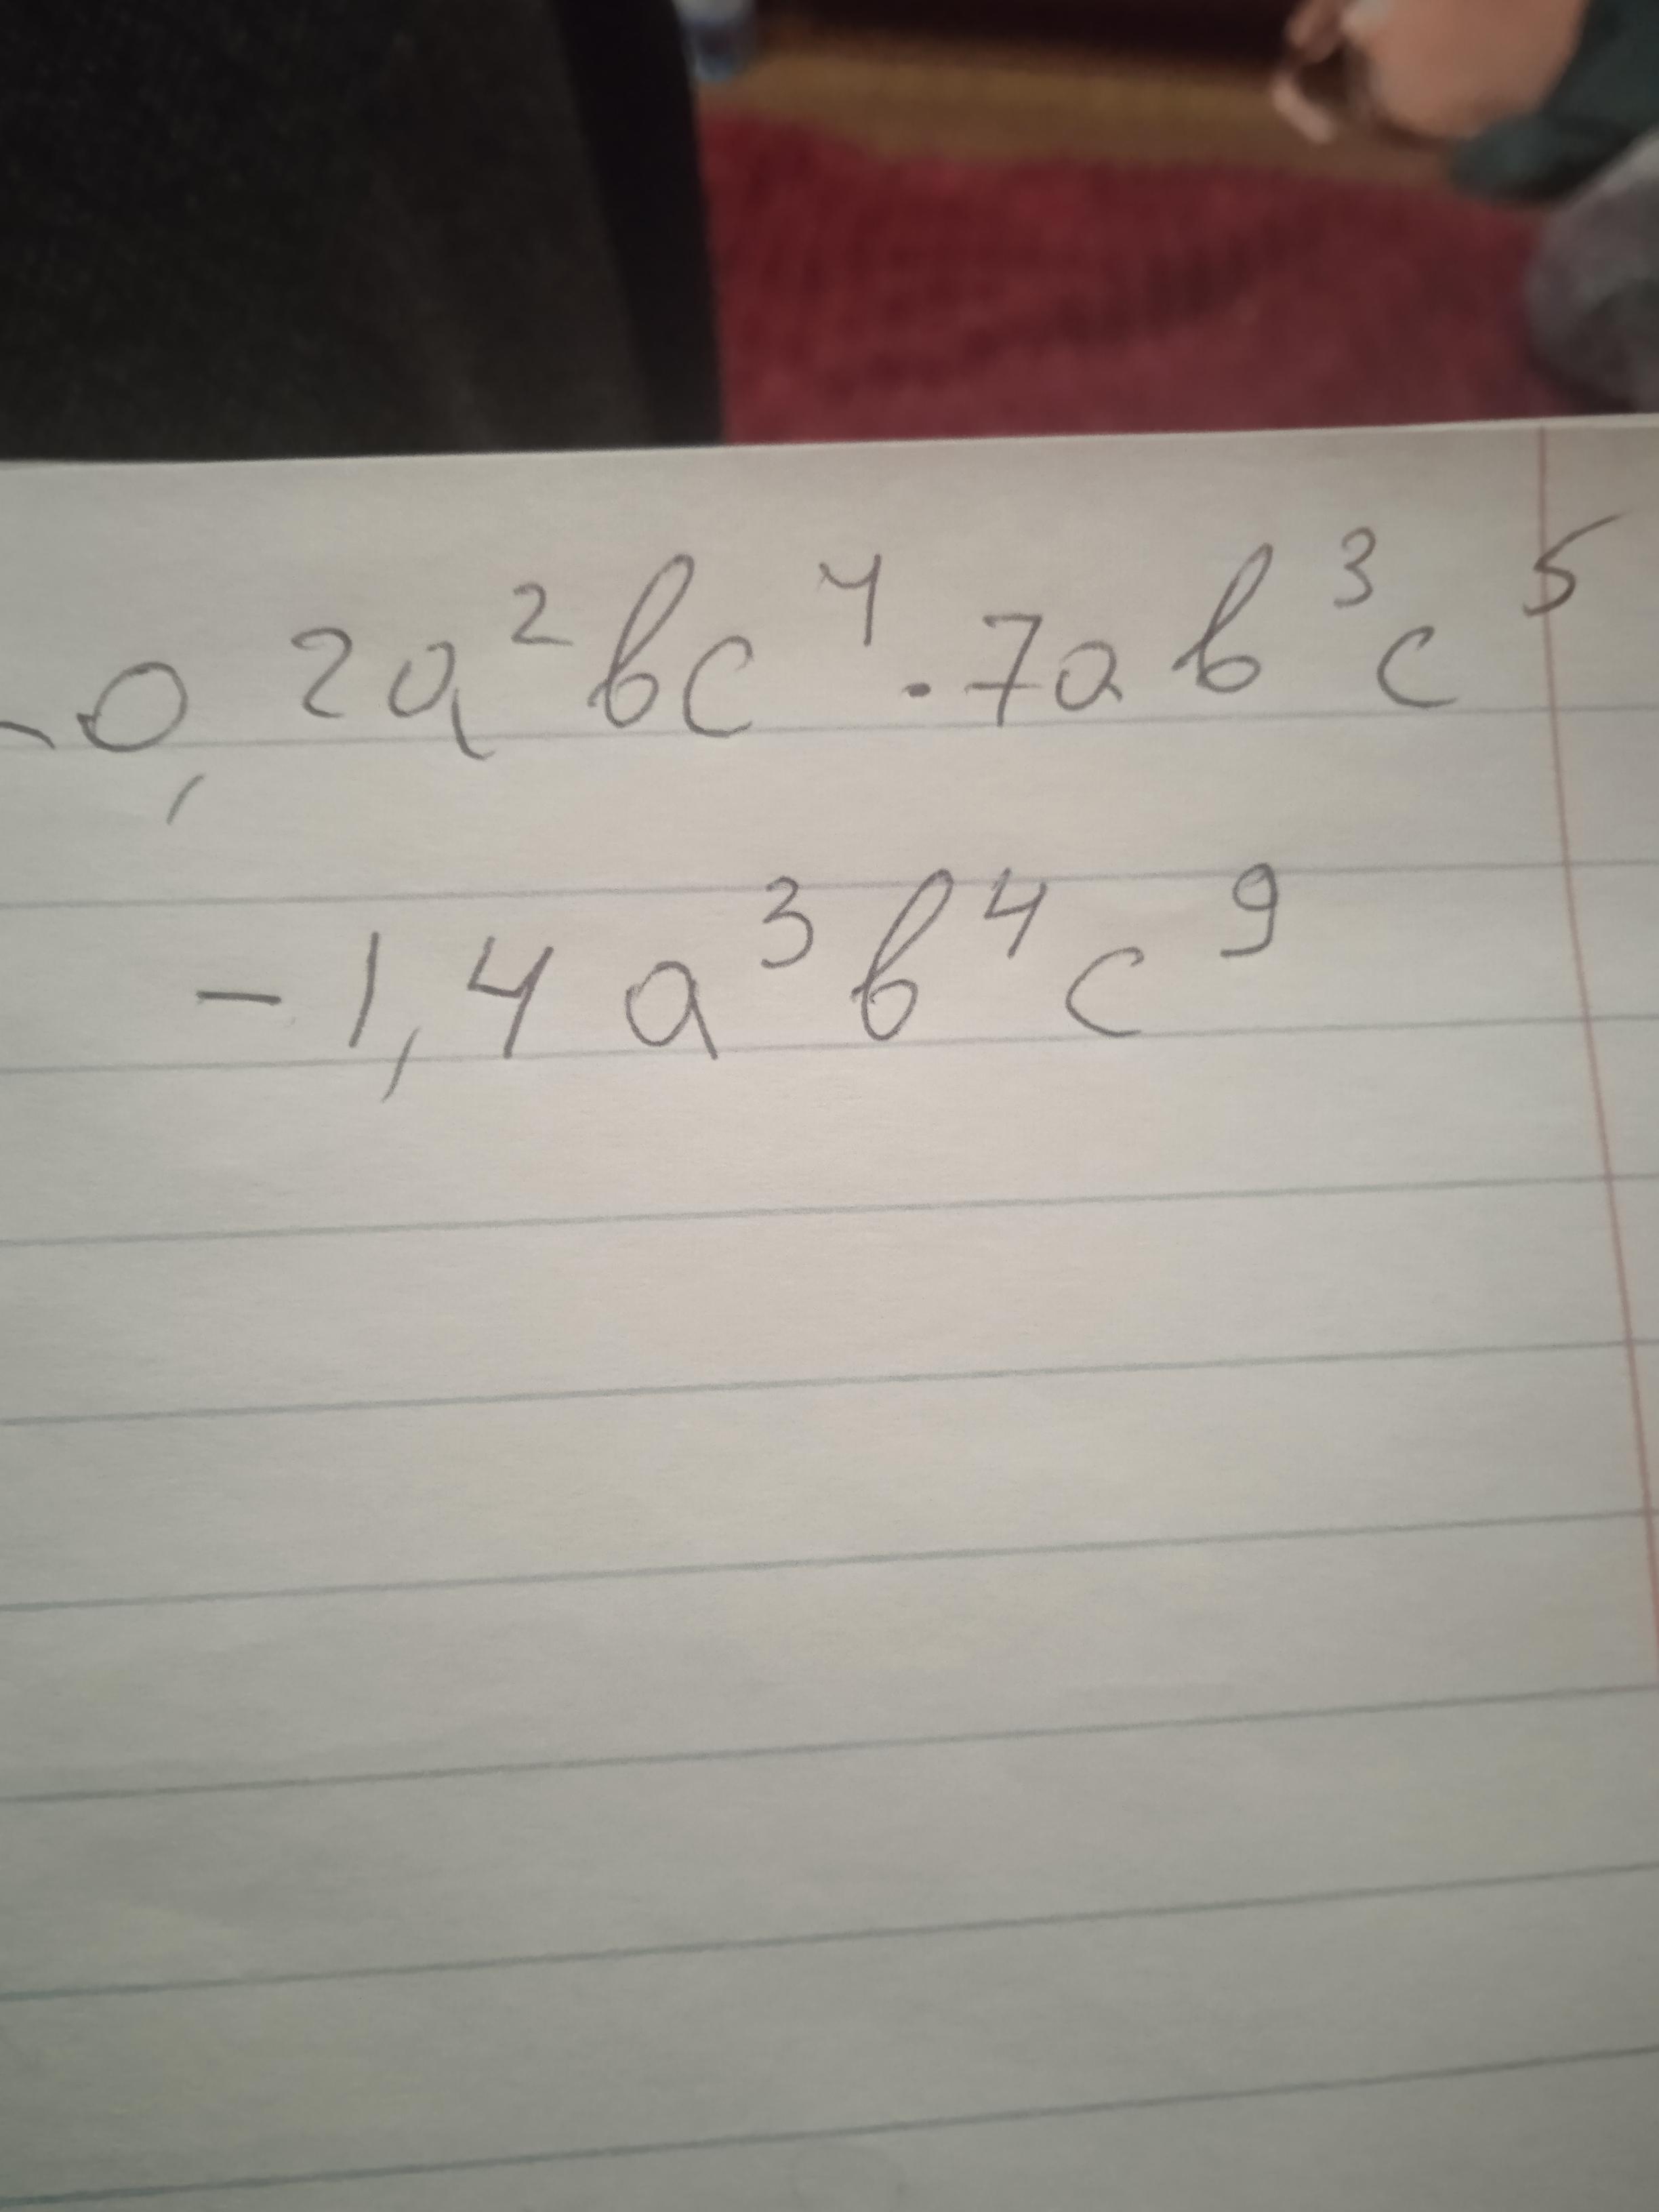 -0,2a²bc⁴·7ab³c⁵
-1,4a³b⁴c⁹